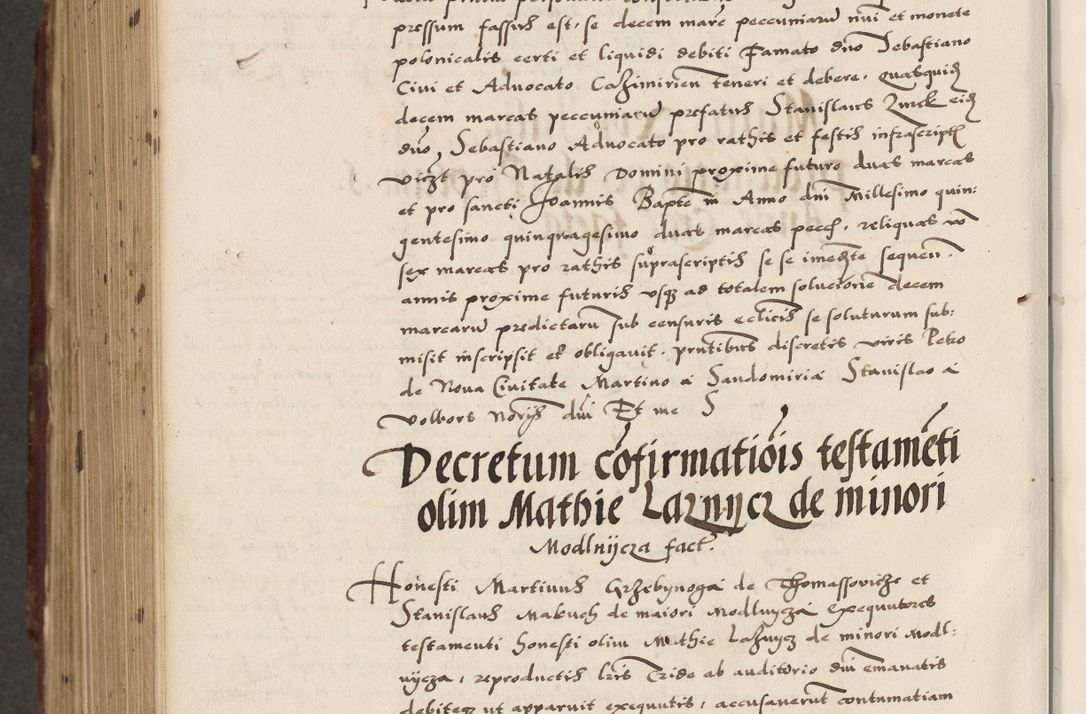 pressum fassus est, se decem marc peccuniaru nui et monete
polonicalis certi et liquidi debiti Famato dno Sebastiano
Civi et Advocato Cazimirien teneri et debere, quasquid
decem marcas peccuniaru prefatus Stanislaus Zurek eid
dno, Sebastiano Advocato pro rathis et festis infrascript
viczt pro Natalis Domini proxime futuro duas marcas
et pro sancti Joannis Bapte in Anno dni Millesimo quin:
gentesimo quinquagesimo duas marcas pecch, reliquas vo
sex marcas pro rathis suprascriptis se se imedte sequen.
annis proxime futuris usq ad totalem solucione decem
marcaru predictaru sub censuris ecclicis se soluturum sub:
misit inscripsit et obligavit. pntibus discretis viris Petro
de Nova Civitate Martino a Sandomiria Stanislao a
Volbors Norijs dni Et me S
Decretum cofirmatiois testameti
olim Mathie Laznijcz de minori
Modlnijcza fact.
Honesti Martinus Grzebynoga de Thomassovicze et
Stanislaus Makuch de maiori Modlnycza exequutores
testamenti honesti olim Mathie Laznycz de minori Modl:
nijcza, reproductis lris Cride ab auditorio dni emanatis
debiteq ut apparuit exequutis, accusaverut contumatiam